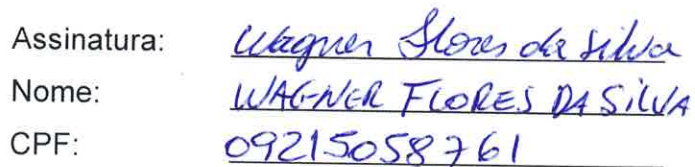 Assinatura: Wagner Flores da Silva
Nome: WAGNER FLORES DA SILVA
CPF: 09215058761